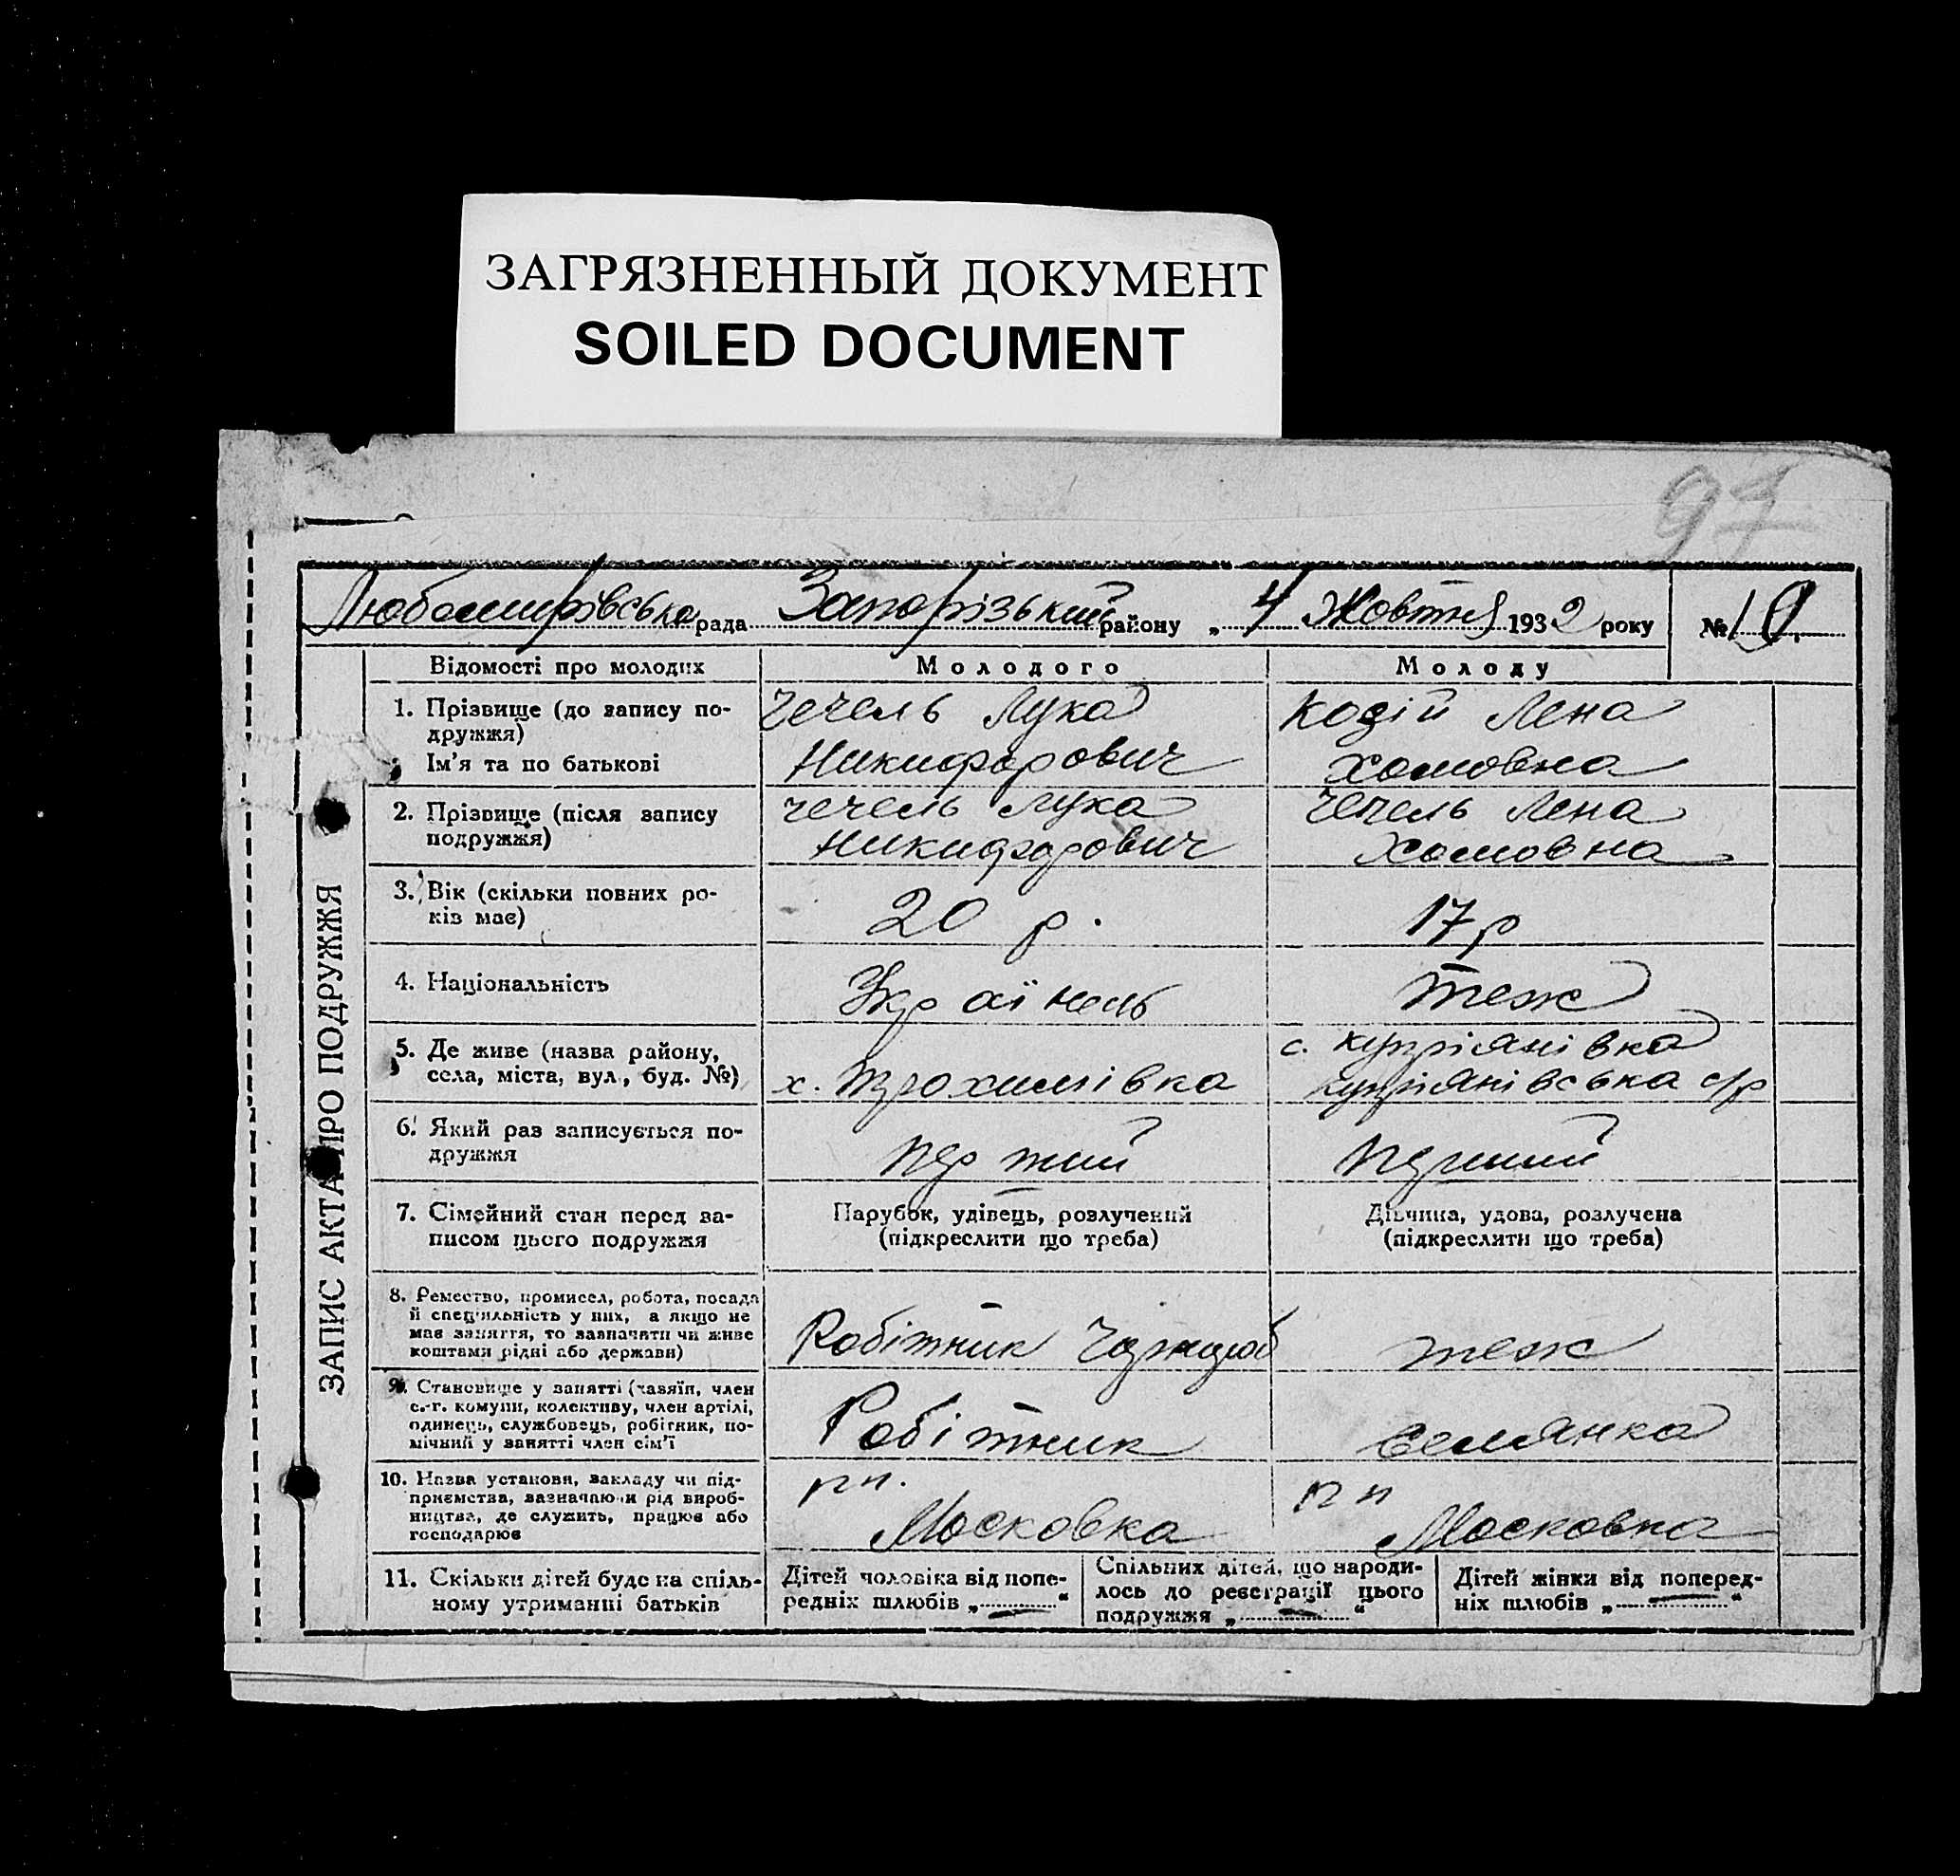 ЗАГРЯЗНЕННЫЙ ДОКУМЕНТ
SOILED DOCUMENT
97
Любомирівська рада Запорізький району „ 4 Жовтня 1932 року № 19.
ЗАПИС АКТА ПРО ПОДРУЖЖЯ
Відомості про молодих
Молодого
Молоду
1. Прізвище (до запису по-
дружжя)
Ім'я та по батькові
Чечель Лука
Никифорович
Кодій Лена
Хомовна
2. Прізвище (після запису
подружжя)
Чечель Лука
Никифорович
Чечель Лена
Хомовна
3. Вік (скільки повних ро-
ків має)
20 р.
17 р
4. Національність
Українець
теж
5. Де живе (назва району,
села, міста, вул., буд. №)
х. Трохимівка
с. Купріянівка
Купріянівська с/р
6. Який раз записується по-
дружжя
перший
Перший
7. Сімейний стан перед за-
писом цього подружжя
Парубок, удівець, розлучений
(підкреслити що треба)
Дівчина, удова, розлучена
(підкреслити що треба)
8. Ремество, промисел, робота, посада
й спеціяльність у них, а якщо не
має заняття, то зазначити чи живе
коштами рідні або держави)
Робітник
теж
9. Становище у занятті (хазяїн, член
с.-г. комуни, колективу, член артілі,
одинець, службовець, робітник, по-
мічний у занятті член сім'ї
Робітник
Селянка
10. Назва установи, закладу чи під-
приємства, зазначаючи рід вироб-
ництва, де служить, працює або
господарює
рп.
Московка
рп
Московка
11. Скільки дітей буде на спіль-
ному утриманні батьків
Дітей чоловіка від попе-
редніх шлюбів „ — “
Спільних дітей, що народи-
лось до реєстрації цього
подружжя „ — “
Дітей жінки від поперед-
ніх шлюбів „ — “